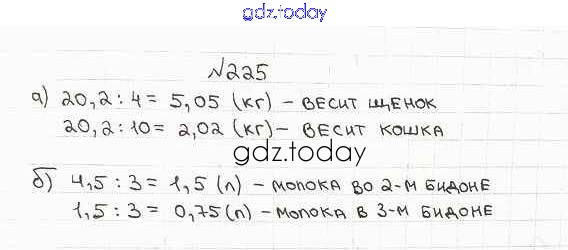 gdz.today
№225
а) 20,2 : 4 = 5,05 (кг) – весит щенок
20,2 : 10 = 2,02 (кг) – весит кошка
gdz.today
б) 4,5 : 3 = 1,5 (л) – молока во 2-м бидоне
1,5 : 3 = 0,75 (л) – молока в 3-м бидоне
gdz.today